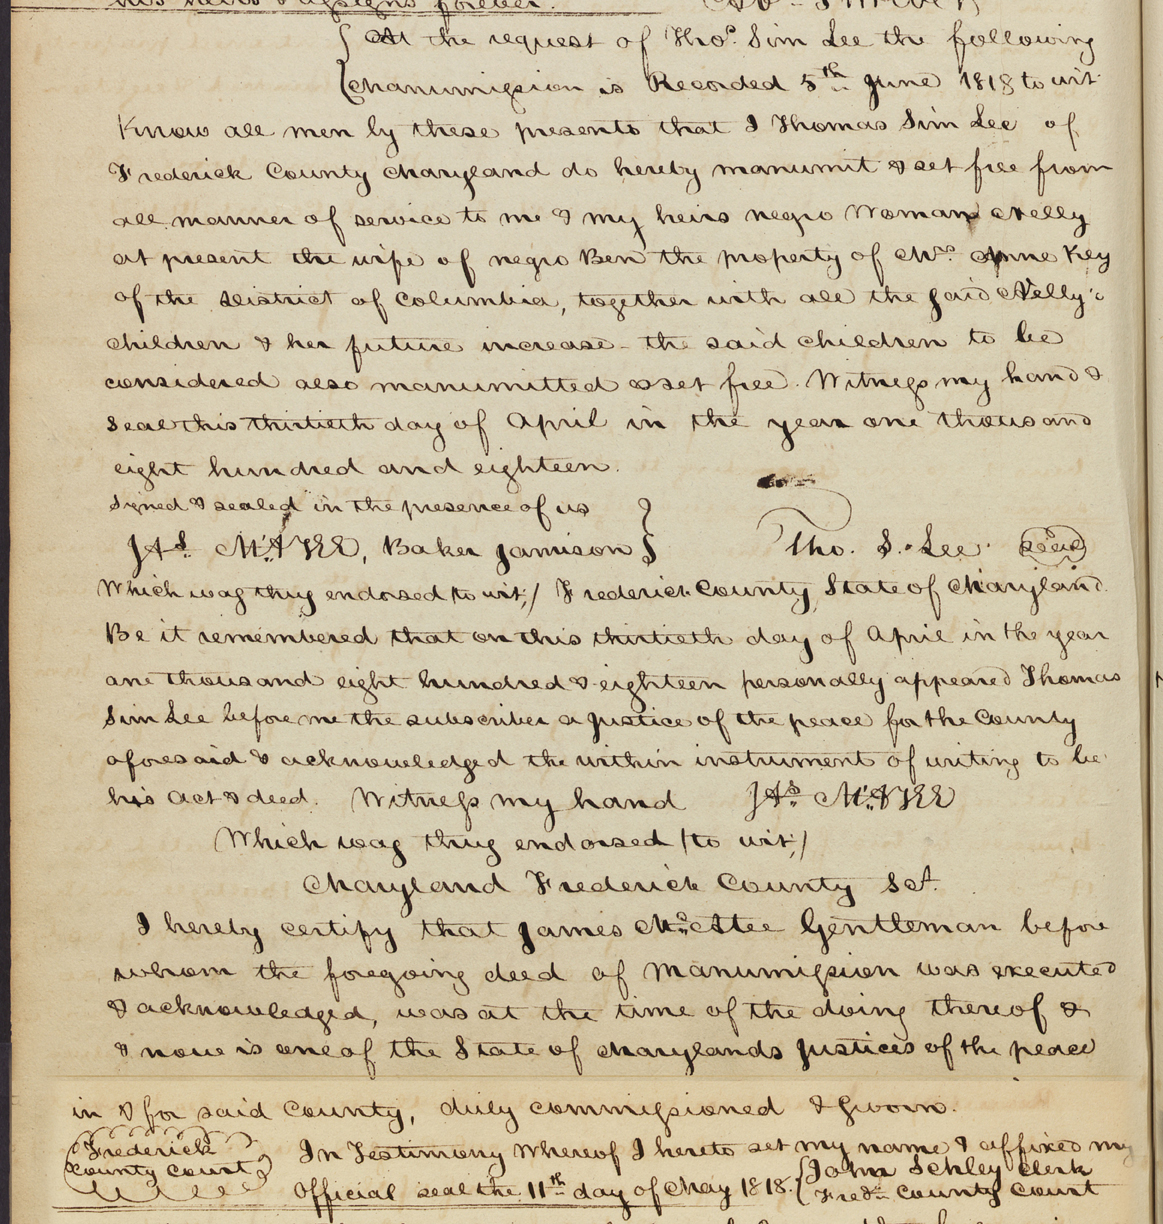 his heirs & assigns forever.
At the request of Thos. Sim Lee the following
Manumission is Recorded 5th June 1818 to wit
Know all men by these presents that I Thomas Sim Lee of
Frederick County Maryland do hereby manumit & set free from
all manner of service to me & my heirs negro Woman Nelly
at present the wife of negro Ben the property of Mrs. Anne Key
of the District of Columbia, together with all the said Nelly's
children & her future increase - the said children to be
considered also manumitted & set free. Witness my hand &
seal this thirtieth day of April in the year one thousand
eight hundred and eighteen.
Signed & sealed in the presence of us
JAs. McATEE, Baker Jamison } Tho. S. Lee (seal)
Which was thus endorsed (to wit;) Frederick County, State of Maryland.
Be it remembered that on this thirtieth day of April in the year
one thousand eight hundred & eighteen personally appeared Thomas
Sim Lee before me the subscriber a justice of the peace for the County
aforesaid & acknowledged the within instrument of writing to be
his act & deed. Witness my hand JAs. McATEE
Which was thus endorsed (to wit;)
Maryland Frederick County Sct.
I hereby certify that James McAtee Gentleman before
whom the foregoing deed of Manumission was executed
& acknowledged, was at the time of the doing thereof &
& now is one of the State of Marylands Justices of the peace
in & for said County, duly commissioned & sworn.
Frederick County Court
In Testimony whereof I hereto set my name & affixed my
Official seal the 11th day of May 1818. { John Schley Clerk
Fredk. County Court